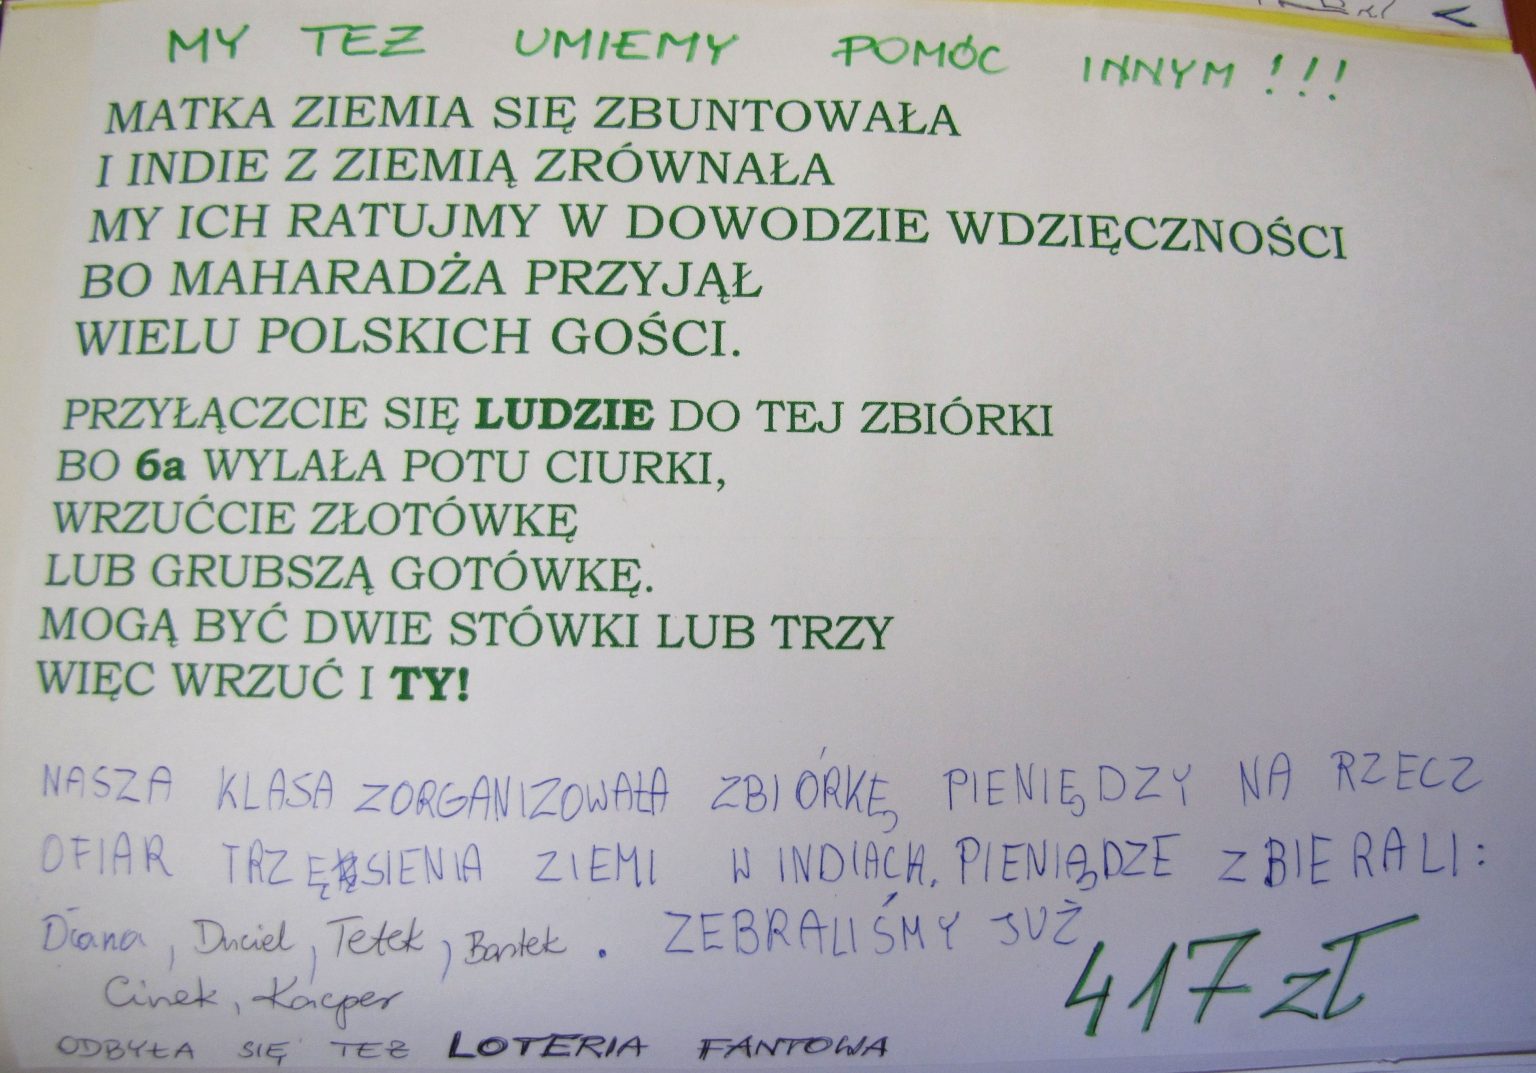 MY TEŻ UMIEMY POMÓC INNYM !!!
MATKA ZIEMIA SIĘ ZBUNTOWAŁA
I INDIE Z ZIEMIĄ ZRÓWNAŁA
MY ICH RATUJMY W DOWODZIE WDZIĘCZNOŚCI
BO MAHARADŻA PRZYJĄŁ
WIELU POLSKICH GOŚCI.
PRZYŁĄCZCIE SIĘ LUDZIE DO TEJ ZBIÓRKI
BO 6a WYLAŁA POTU CIURKI,
WRZUĆCIE ZŁOTÓWKĘ
LUB GRUBSZĄ GOTÓWKĘ.
MOGĄ BYĆ DWIE STÓWKI LUB TRZY
WIĘC WRZUĆ I TY!
NASZA KLASA ZORGANIZOWAŁA ZBIÓRKĘ PIENIĘDZY NA RZECZ
OFIAR TRZĘSIENIA ZIEMI W INDIACH. PIENIĄDZE ZBIERALI:
Diana, Duciel, Tetek, Bartek. ZEBRALIŚMY JUŻ
Cinek, Kacper 417 zł
ODBYŁA SIĘ TEŻ LOTERIA FANTOWA